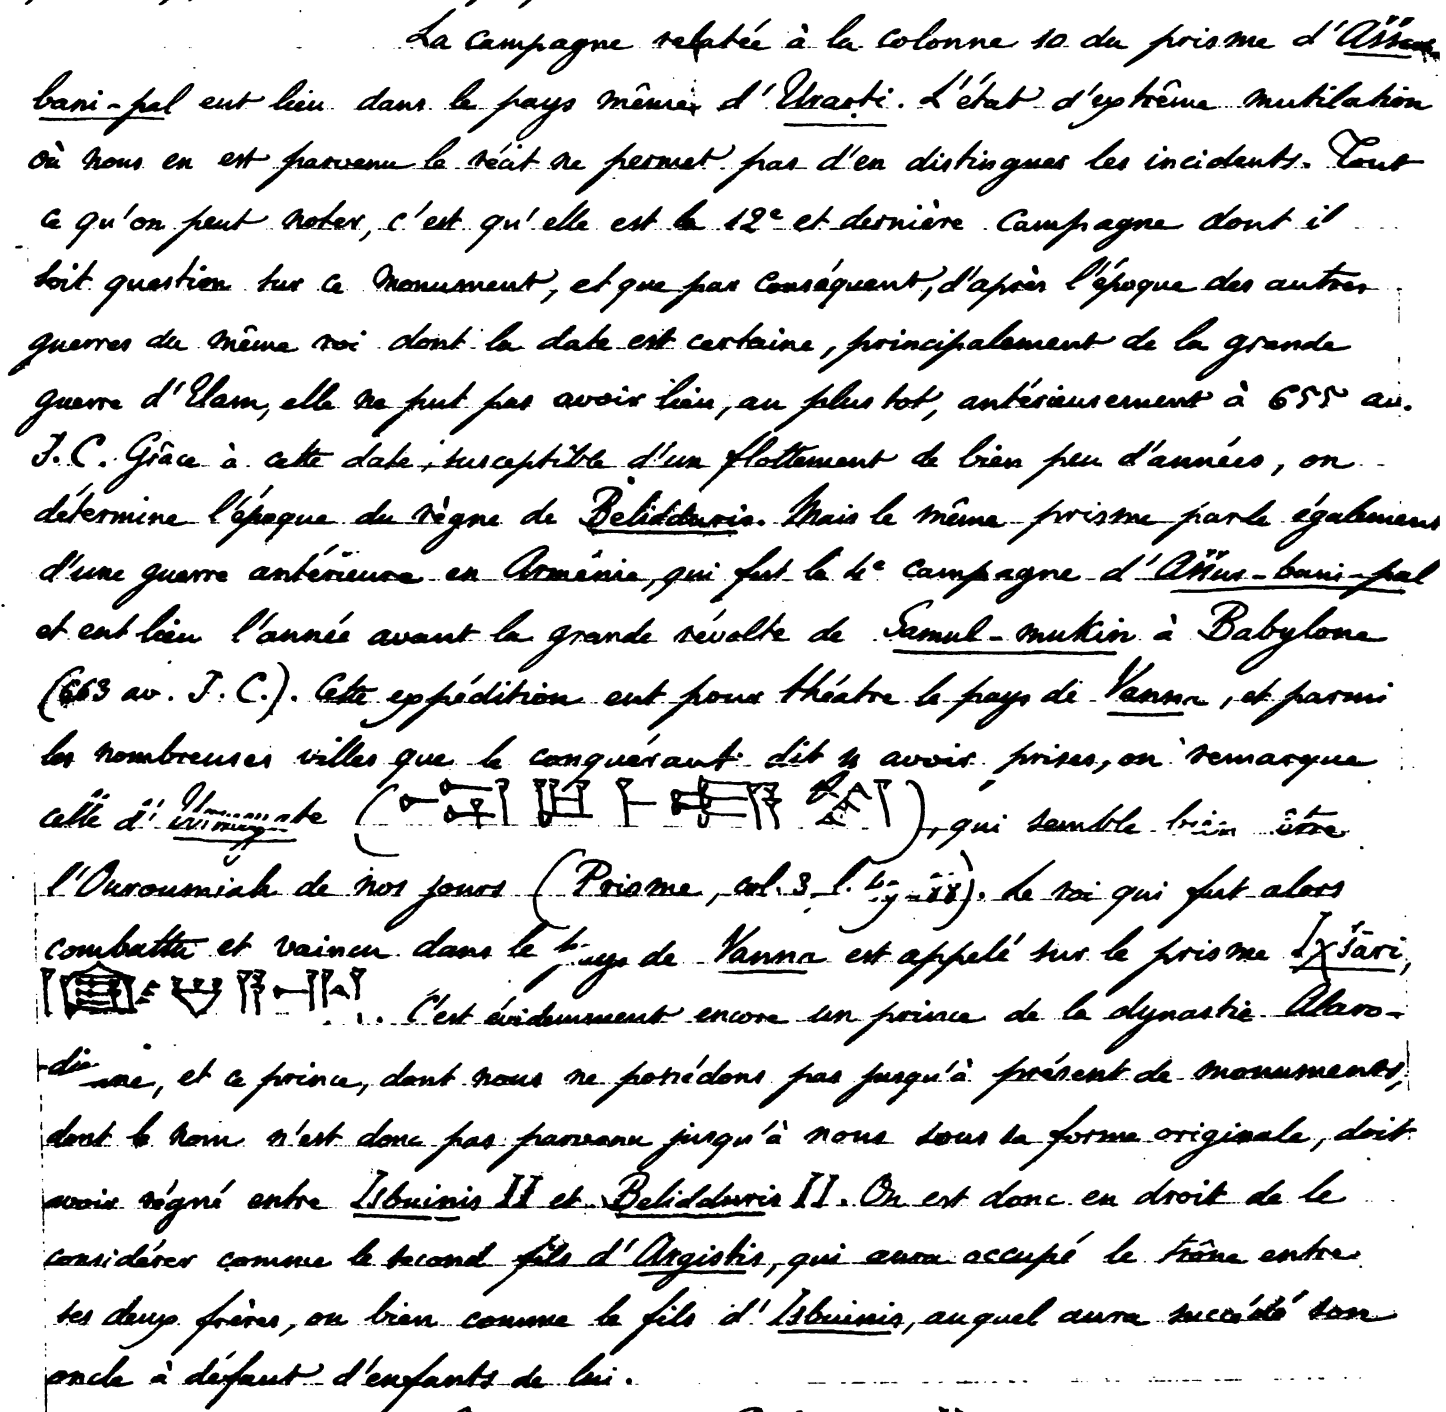 La campagne relatée à la colonne 10 du prisme d'Aššur-
bani-pal eut lieu dans le pays même d'Urarti. L'état d'extrême mutilation
où nous en est parvenu le récit ne permet pas d'en distinguer les incidents. Tout
ce qu'on peut noter, c'est qu'elle est la 12e et dernière campagne dont il
soit question sur ce monument, et que par conséquent, d'après l'époque des autres
guerres du même roi dont la date est certaine, principalement de la grande
guerre d'Elam, elle ne put pas avoir lieu, au plus tot, antérieurement à 655 av.
J. C. Grâce à cette date, susceptible d'un flottement de bien peu d'années, on
détermine l'époque du règne de Belidduris. Mais le même prisme parle également
d'une guerre antérieure en Arménie, qui fut la 4e campagne d'Aššur-bani-pal
et eut lieu l'année avant la grande révolte de Samul-mukin à Babylone
(663 av. J. C.). Cette expédition eut pour théâtre le pays de Vanna, et parmi
les nombreuses villes que le conquérant dit y avoir prises, on remarque
celle d' ( ), qui semble bien être
l'Ouroumiah de nos jours (Prisme, col. 3, l. ). Le roi qui fut alors
combattu et vaincu dans le pays de Vanna est appelé sur le prisme Iχšari,
C'est évidemment encore un prince de la dynastie Alaro-
dienne, et ce prince, dont nous ne possédons pas jusqu'à présent de monuments,
dont le nom n'est donc pas parvenu jusqu'à nous sous sa forme originale, doit
avoir régné entre Isbuinis II et Belidduris II. On est donc en droit de le
considérer comme le second fils d'Argistis, qui aura occupé le trône entre
ses deux frères, ou bien comme le fils d'Isbuinis, auquel aura succédé son
oncle à défaut d'enfants de lui.